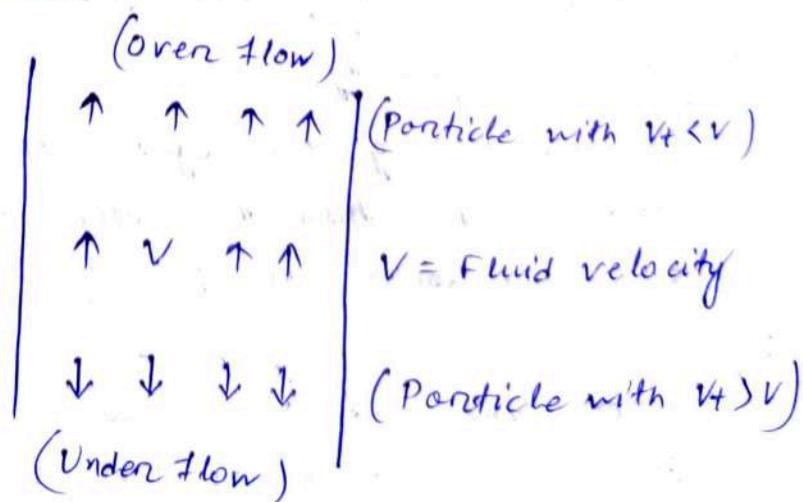 (Over flow)
↑ ↑ ↑ ↑ (Particle with Vt < V)
↑ V ↑ ↑ V = Fluid velocity
↓ ↓ ↓ ↓ (Particle with Vt > V)
(Under flow)